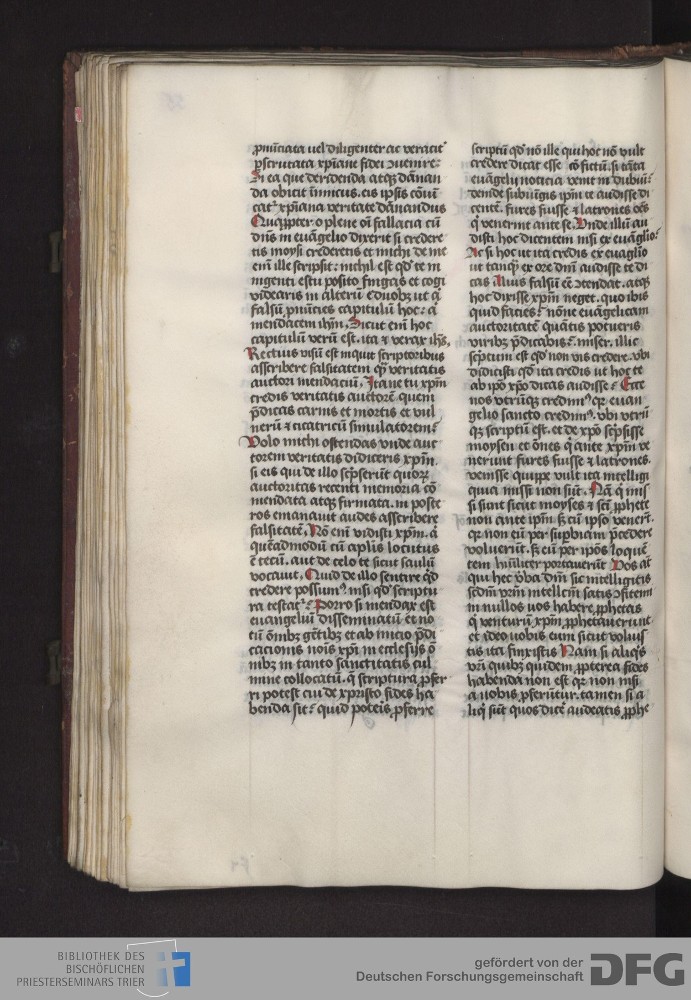 ꝓnūciata uel diligenter ac veracit᷑
ꝑscrutata xp̄iane fidei ↄuenire:
Si ea que deridenda atqꝫ dānan
da obicit īimicus. eis ip̄sis cōui
cat᷑ xp̄iana veritate dānandus
Quaꝓpter o plene oī fallacia cū
dn̄s in euāgelio dixerit si credere
tis moysi crederetis et michi de me
enī ille scripsit: nichil est qd̓ te in
ingenti estu posito fingas et cogi
videaris in alterū e duobꝫ ut aͥ
falsū ꝓnūcies capitulū hoc: aͥ
mendacem ih̄m, Sicut enī hoc
capitulū verū est. ita ⁊ verax ih̄s,
Rectius visū est inquit scriptoribus
asscribere falsitatem qͣ̄ veritatis
auctori mendaciū, Itane tu xp̄m
credis veritatis auctorē quem
p̄dicas carnis et mortis et vul
nerū ⁊ cicatricū simulatorem:
Volo michi ostendas vnde auc
torem veritatis didiceris xp̄m.
si eis qui de illo sc̄pserūt quorꝝ
auctoritas recenti memoria cō
mendata atqꝫ firmata. in poste
ros emanauit audes asscribere
falsitatē, Nō enī vidisti xp̄m. aͥ
quēadmodū cū ap̄lis locutus
ē tecū. aut de celo te sicut saulū
vocauit, Quid de illo sentire qͥd
credere possumꝰ. nisi qd̓ scriptu
ra testat᷑: Porro si mendax est
euangeliū disseminatū et no
tū ōnibꝫ gētibꝫ et ab inicio p̄di
cacionis noīs xp̄i in ecclesijs ō
nibꝫ in tanto sanctitatis cul
mine collocatū. q̄ scriptura ꝓfer
ri potest cui de xpristo fides ha
benda sit: quid poteris ꝓferre
scriptū qd̓ nō ille qui hoc nō vult
credere dicat esse cō fictū. si tāta
euāgelij noticia venit in dubiū:
deinde subiūgis ip̄m te audisse di
centē. fures fuisse ⁊ latrones oēs
qͥ venerint ante se, Vnde illū au
disti hoc dicentem nisi ex euāglio:
Ac si hoc ut ita credis ex euāglio
ut tanqͣ̄ ex ore dn̄i audisse te di
cas Alius falsū eē ↄtendat. atqꝫ
hoc dixisse xp̄m neget. quo ibis
quid facies: nōne euāgelicam
auctoritatē quātis potueris
viribꝫ p̄dicabis: miser. illic
sc̄ptum est qd̓ non vis credere. vbi
didicisti qd̓ ita credis ut hoc te
ab ip̄o xp̄o dicas audisse: Ecce
nos vtrūqꝫ credimꝰ qꝛ euan
gelio sancto credimꝰ. vbi vtrū
qꝫ scriptū est. et de xp̄o sc̄psisse
moysen et ōnes qͥ ante xp̄m ve
nerunt fures fuisse ⁊ latrones.
venisse quippe vult ita intelligi
quia missi non sūt, Nā qͥ mis
si sunt sicut moyses ⁊ sc̄i ꝓphete
non ante ip̄m sꝫ cū ip̄so venerūt.
qꝛ non eū per supbiam p̄cedere
voluerūt. sꝫ eū per ip̄os loquē
tem hūiliter portauerūt Vos aūt
qui hec v̓ba dn̄i sic intelligitis
scd̓m vr̄m intellcm̄ satis ↄfitemī
in nullos uos habere ꝓphetas
qͥ venturū xp̄m ꝓphetauerunt
et ideo uobis eum sicut voluis
tis ita finxistis Nam si aliqͦs
vr̄i quibꝫ quidem ꝓpterea fides
habenda non est qꝛ non nisi
a uobis ꝓferūtur. tamen si a
liqͥ sūt quos dicē audeatis ꝓphe
BIBLIOTHEK DES
BISCHÖFLICHEN
PRIESTERSEMINARS TRIER
gefördert von der
Deutschen Forschungsgemeinschaft
DFG